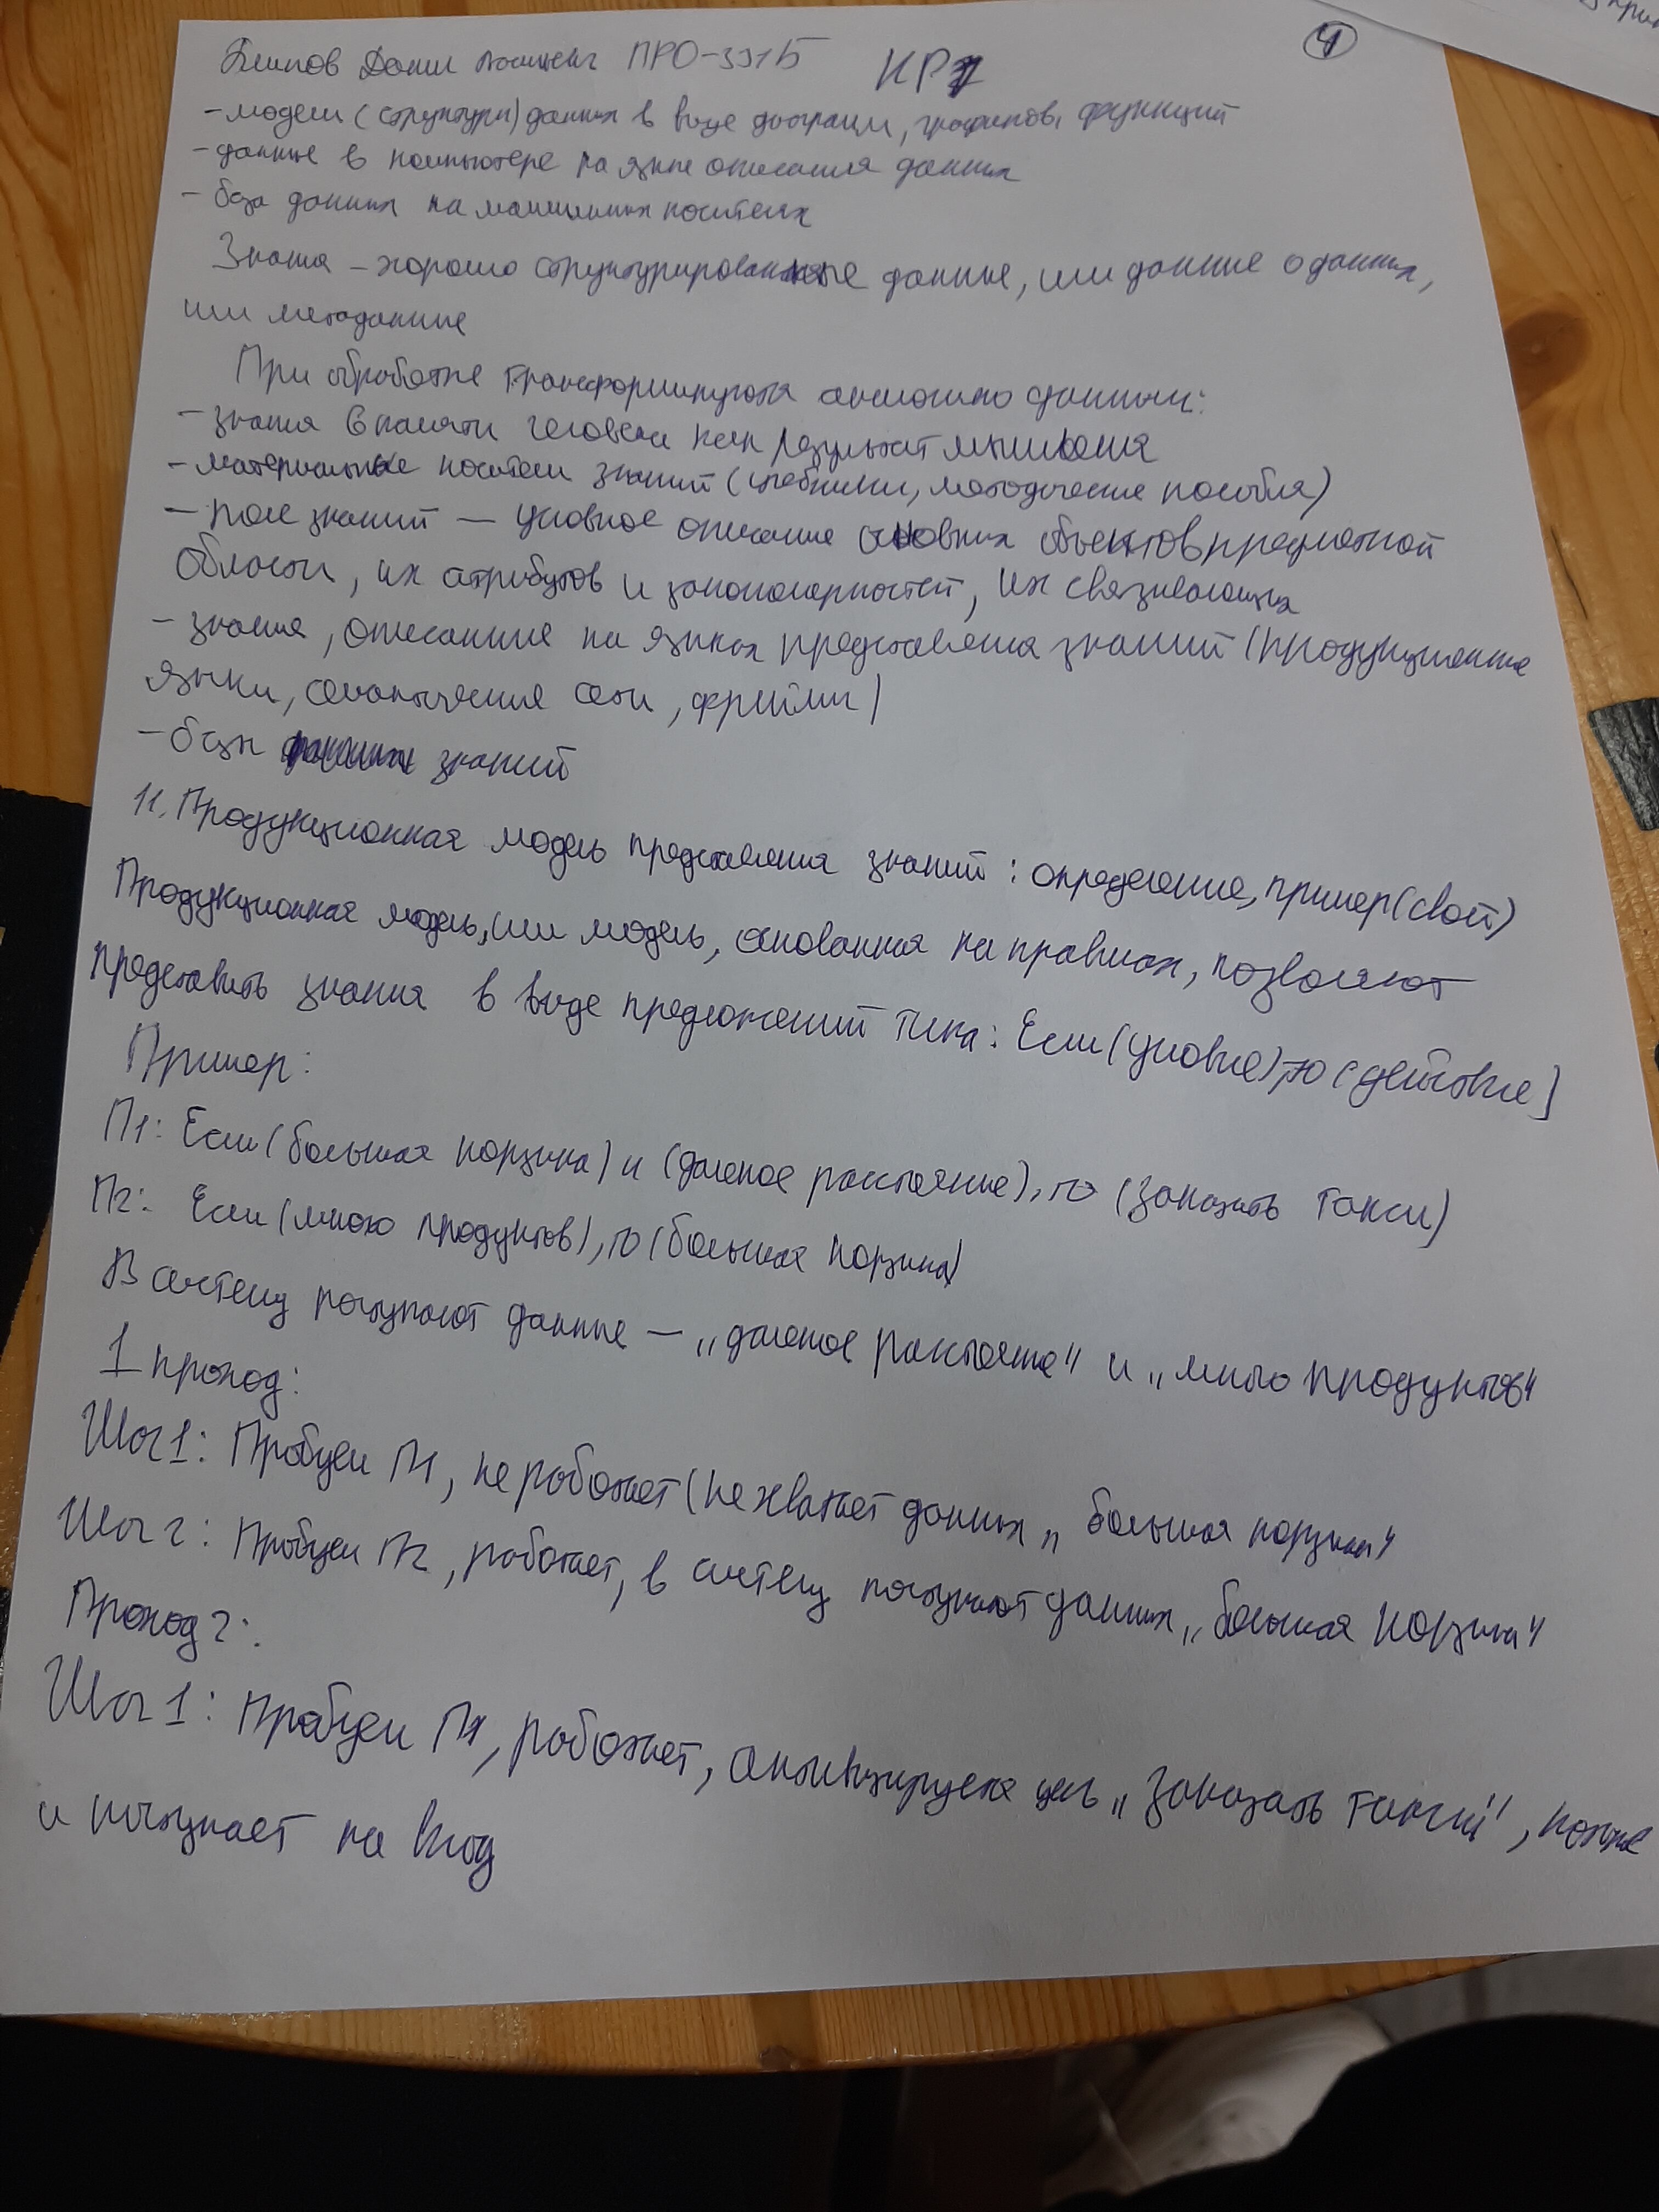 ПРО-331Б КР1 4
- модели (структуры) данных в виде диаграмм, графиков, функций
- данные в компьютере на языке описания данных
- база данных на машинных носителях
Знания - хорошо структурированные данные, или данные о данных,
или метаданные
При обработке трансформируются аналогично данным:
- знания в памяти человека как результат мышления
- материальные носители знаний (учебники, методические пособия)
- поле знаний - условное описание основных объектов предметной
области, их атрибутов и закономерностей, их связывающих
- знания, описанные на языках представления знаний (продукционные
языки, семантические сети, фреймы)
- базы знаний
11. Продукционная модель представления знаний: определение, пример (свой)
Продукционная модель, или модель, основанная на правилах, позволяют
представить знания в виде предложений типа: Если (условие), то (действие)
Пример:
П1: Если (большая корзина) и (далекое расстояние), то (заказать такси)
П2: Если (много продуктов), то (большая корзина)
В систему поступают данные - "далекое расстояние" и "много продуктов"
1 проход:
Шаг 1: Пробуем П1, не работает (не хватает данных "большая корзина"
Шаг 2: Пробуем П2, работает, в систему поступают данных "большая корзина"
Проход 2:
Шаг 1: Пробуем П1, работает, активизируется цель "заказать такси",
и поступает на вход